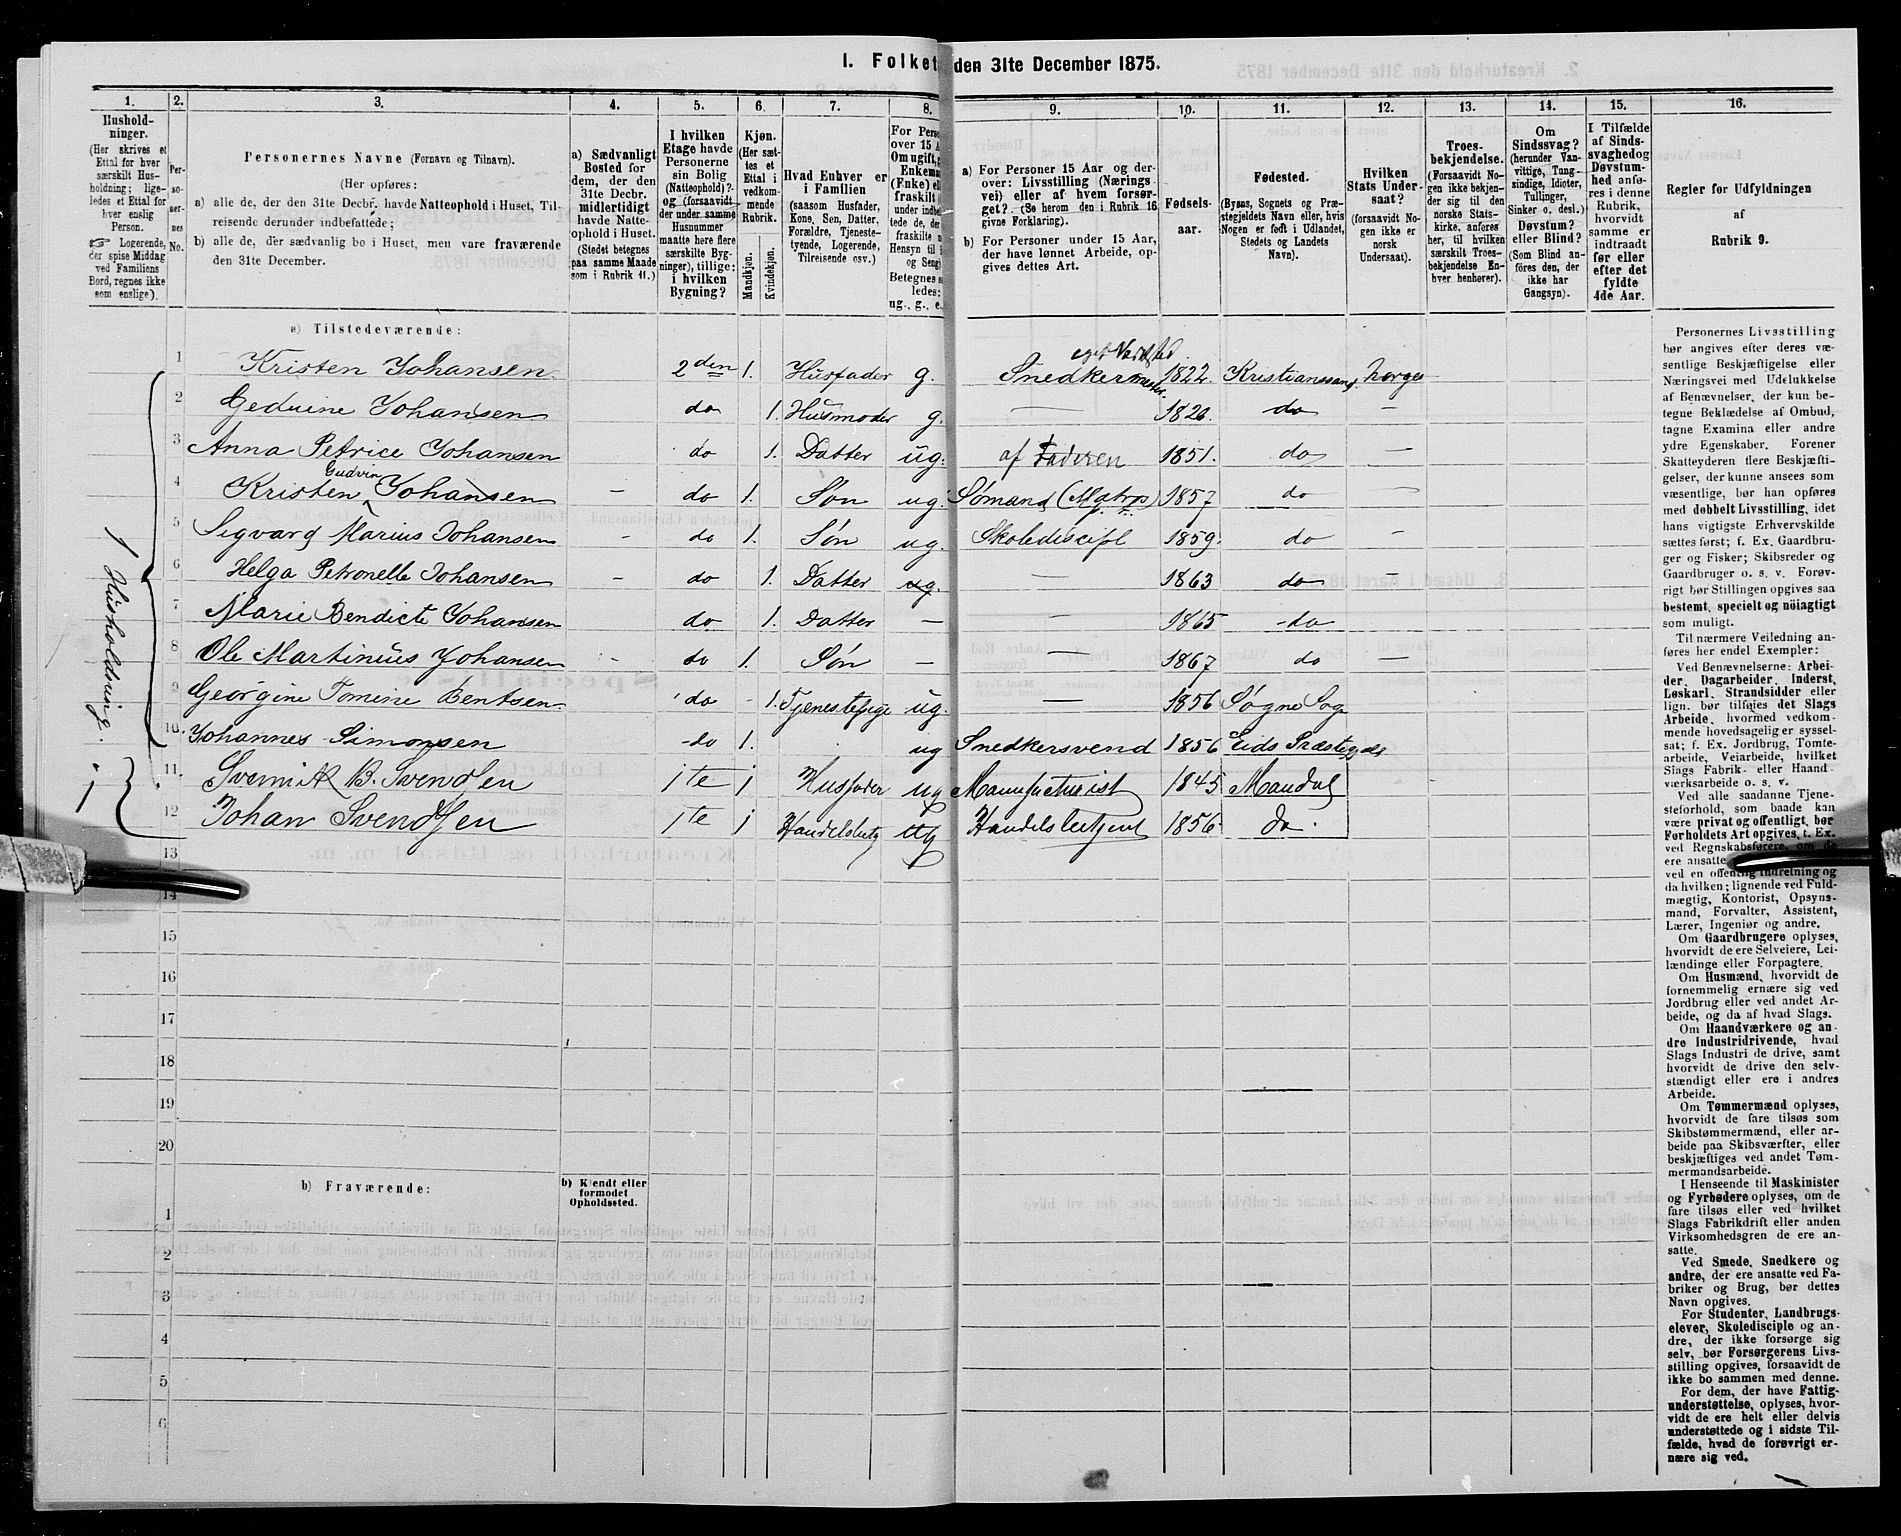 I. Folket den 31te December 1875.
1. 2. 3. 4. 5. 6. 7. 8. 9. 10. 11. 12. 13. 14. 15. 16.
Hushold-
ninger.
(Her skrives et
Ettal for hver
særskilt Hus-
holdning; lige-
ledes et Ettal for
hver enslig
Person.
Logerende,
der spise Middag
ved Familiens
Bord, regnes ikke
som enslige).
Per-
so-
ner-
nes
No.
Personernes Navne (Fornavn og Tilnavn).
(Her opføres:
a) alle de, der den 31te Decbr. havde Natteophold i Huset, Til-
reisende derunder indbefattede;
b) alle de, der sædvanlig bo i Huset, men vare fraværende
den 31te December.
a) Sædvanligt
Bosted for
dem, der den
31te Decbr.
midlertidigt
havde Natte-
ophold i Huset.
(Stedet betegnes
paa samme Maade
som i Rubrik 11.)
I hvilken
Etage havde
Personerne
sin Bolig
(Natteophold)?
og (forsaavidt
der under samme
Husnummer
maatte høre flere
særskilte Byg-
ninger), tillige:
i hvilken
Bygning?
Kjøn.
(Her sæt-
tes et
Ettal i
vedkom-
mende
Rubrik.
Mandkjøn.
Kvindekjøn.
Hvad Enhver er
i Familien
(saasom Husfader,
Kone, Søn, Datter,
Forældre, Tjeneste-
tyende, Logerende,
Tilreisende osv.)
For Perso
over 15 A
Om ugift, g
Enkema
(Enke) el
fraskilt
under indb
tede de, de
fraskilte
Hensyn til
og Seng
Betegnes s
ledes:
ug., g., e.
a) For Personer 15 Aar og der-
over: Livsstilling (Nærings
vei) eller af hvem forsør-
get? (Se herom den i Rubrik 16
givne Forklaring).
b) For Personer under 15 Aar,
der have lønnet Arbeide, op-
gives dettes Art.
Fødsels-
aar.
Fødested.
(Byens, Sognets og Præ-
stegjeldets Navn eller, hvis
Nogen er født i Udlandet,
Stedets og Landets
Navn).
Hvilken
Stats Under-
saat?
(forsaavidt No-
gen ikke er
norsk
Undersaat).
Troes-
bekjendelse.
(Forsaavidt No-
gen ikke bekjen-
der sig til den
norske Stats-
kirke, anføres
her, til hvilken
særskilt Troes-
bekjendelse En-
hver henhører).
Om
Sindssvag?
(herunder Van-
vittige, Tung-
sindige, Idioter,
Tullinger,
Sinker o. desl.)
Døvstum?
eller Blind?
(Som Blind an-
føres den, der
ikke har
Gangsyn).
I Tilfælde
af Sinds-
svaghed og
Døvstum-
hed anfø-
res i denne
Rubrik,
hvorvidt
samme er
indtraadt
før eller
efter det
fyldte
4de Aar.
Regler for Udfyldningen
af
Rubrik 9.
a) Tilstedeværende:
eget Værksted
1 Kristen Johansen. 2den 1. Husfader g. Snedkermester. 1822. Kristianssand Norges
2 Geduine Johansen do 1. Husmoder g. — 1820. do —
3 Anna Petrice Johansen do 1. Datter ug. af Faderen 1851. do —
Gudvin
4 Kristen Johansen - do 1. Søn ug. Sømand (Matros) 1857 do —
5 Sigvard Marius Johansen - do 1. Søn ug. Skolediscipl 1859. do —
6 Helga Petronelle Johansen - do 1. Datter ug. — 1863 do —
7 Marie Bendicte Johansen do 1. Datter — — 1865 -do —
8 Ole Martinius Johansen - do 1. Søn — — 1867 do —
9 Georgine Tomine Bentsen. do 1. Tjenestepige ug. 1856 Søgne Sog
10. Johannes Simonsen -do 1. ug Snedkersvend 1856 Eids Præstegjæ
11. B. Svendsen 1te 1 Husfader ug Manufacturist 1845 Mandal
12 Johan Svendsen 1te 1 ug 1856 do.
1 Husholdning.
1
13
14
15
16
17
18
19
20
b) Fraværende:
b) Kjendt eller
formodet
Opholdssted.
1
2
3
4
5
6
Personernes Livsstilling
bør angives efter deres væ-
sentlige Beskjæftigelse eller
Næringsvei med Udelukkelse
af Benævnelser, der kun be-
tegne Beklædelse af Ombud,
tagne Examina eller andre
ydre Egenskaber. Forener
Skatteyderen flere Beskjæfti-
gelser, der kunne ansees som
væsentlige, bør han opføres
med dobbelt Livsstilling, idet
hans vigtigste Erhvervskilde
sættes først; f. Ex. Gaardbru-
ger og Fisker; Skibsreder og
Gaardbruger o. s. v. Forøv-
rigt bør Stillingen opgives saa
bestemt, specielt og nøiagtigt
som muligt.
Til nærmere Veiledning an-
føres her endel Exempler:
Ved Benævnelserne: Arbei-
der, Dagarbeider, Inderst,
Løskarl, Strandsidder eller
lign. bør tilføies det Slags
Arbeide, hvormed vedkom-
mende hovedsagelig er syssel-
sat; f. Ex. Jordbrug, Tomte-
arbeide, Veiarbeide, hvilket
Slags Fabrik- eller Haand-
værksarbeide o. s. v.
Ved alle saadanne Tjene-
steforhold, som baade kan
være privat og offentligt, bør
Forholdets Art opgives, f. Ex.
ved Regnskabsførere, om de
ere ansatte
ved en offentlig Indretning og
da hvilken; lignende ved Fuld-
mægtig, Kontorist, Opsyns-
mand, Forvalter, Assistent,
Lærer, Ingeniør og andre.
Om Gaardbrugere oplyses,
hvorvidt de ere Selveiere, Lei-
lændinge eller Forpagtere.
Om Husmænd, hvorvidt de
fornemmelig ernære sig ved
Jordbrug eller ved andet Ar-
beide, og da af hvad Slags.
Om Haandværkere og an-
dre Industridrivende, hvad
Slags Industri de drive, samt
hvorvidt de drive den selv-
stændigt eller ere i andres
Arbeide.
Om Tømmermænd oplyses,
hvorvidt de fare tilsøs som
Skibstømmermænd, eller ar-
beide paa Skibsværfter, eller
beskjæftiges ved andet Tøm-
mermandsarbeide.
I Henseende til Maskinister
og Fyrbødere oplyses, om de
fare tilsøs eller ved hvilket
Slags Fabrikdrift eller anden
Virksomhedsgren de ere an-
satte.
Ved Smede, Snedkere og
andre, der ere ansatte ved Fa-
briker og Brug, bør dettes
Navn opgives.
For Studenter, Landbrugs-
elever, Skoledisciple og an-
dre, der ikke forsørge sig
selv, bør Forsørgerens Livs-
stilling opgives, forsaavidt de
ikke bo sammen med denne.
For dem, der have Fattig-
understøttelse, oplyses, hvor-
vidt de ere helt eller delvis
understøttede og i sidste Til-
fælde, hvad de forøvrigt er-
nære sig ved.